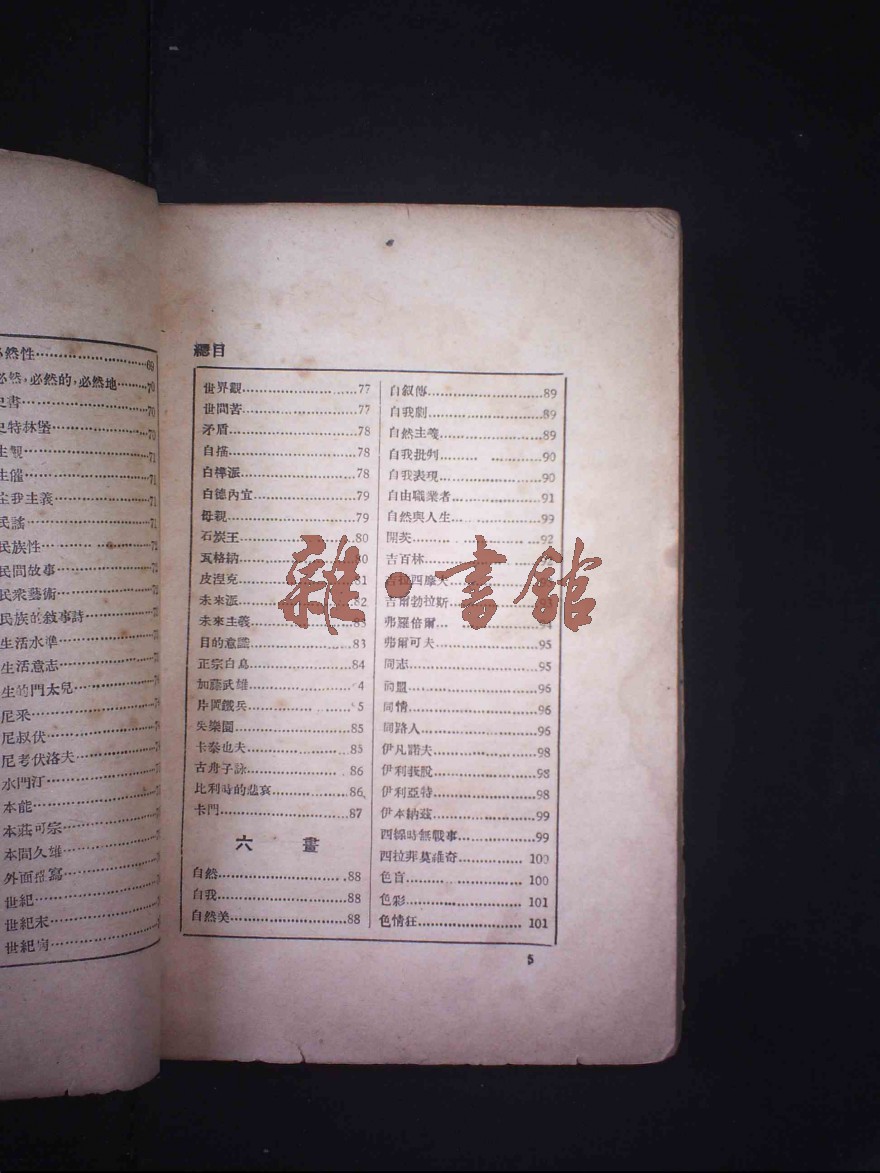 然性……69
然，必然的，必然地……70
書……70
特林堡……70
觀……71
催……71
我主義……71
民謠……71
民族性
民間故事
民衆藝術
民族的敘事詩
生活水準
生活意志
生的門太兒
尼采
尼叔伏
尼考伏洛夫
水門汀
本能
本莊可宗
本間久雄
外面描寫
世紀
世紀末
總目
世界觀……77
世間苦……77
矛盾……78
自描……78
白樺派……78
白德內宜……79
母親……79
石炭王……80
瓦格納……80
皮涅克……81
未來派……82
未來主義……83
目的意識……83
正宗白鳥……84
加藤武雄……4
片岡鐵兵……5
失樂園……85
卡泰也夫……85
古舟子詠……86
比利時的悲哀……86
卡門……87
六 畫
自然……88
自我……88
自然美……88
自叙傳……89
自我劇……89
自然主義……89
自我批判……90
自我表現……90
自由職業者……91
自然與人生……99
開茨……92
吉百林
吉拉西摩夫
吉爾勃拉斯
弗羅倍爾……94
弗爾可夫……95
同志……95
同盟……96
同情……96
同路人……96
伊凡諾夫……98
伊利莪脫……98
伊利亞特……98
伊本納茲……99
西線時無戰事……99
西拉菲莫維奇……100
色盲……100
色彩……101
色情狂……101
5
雜·書館